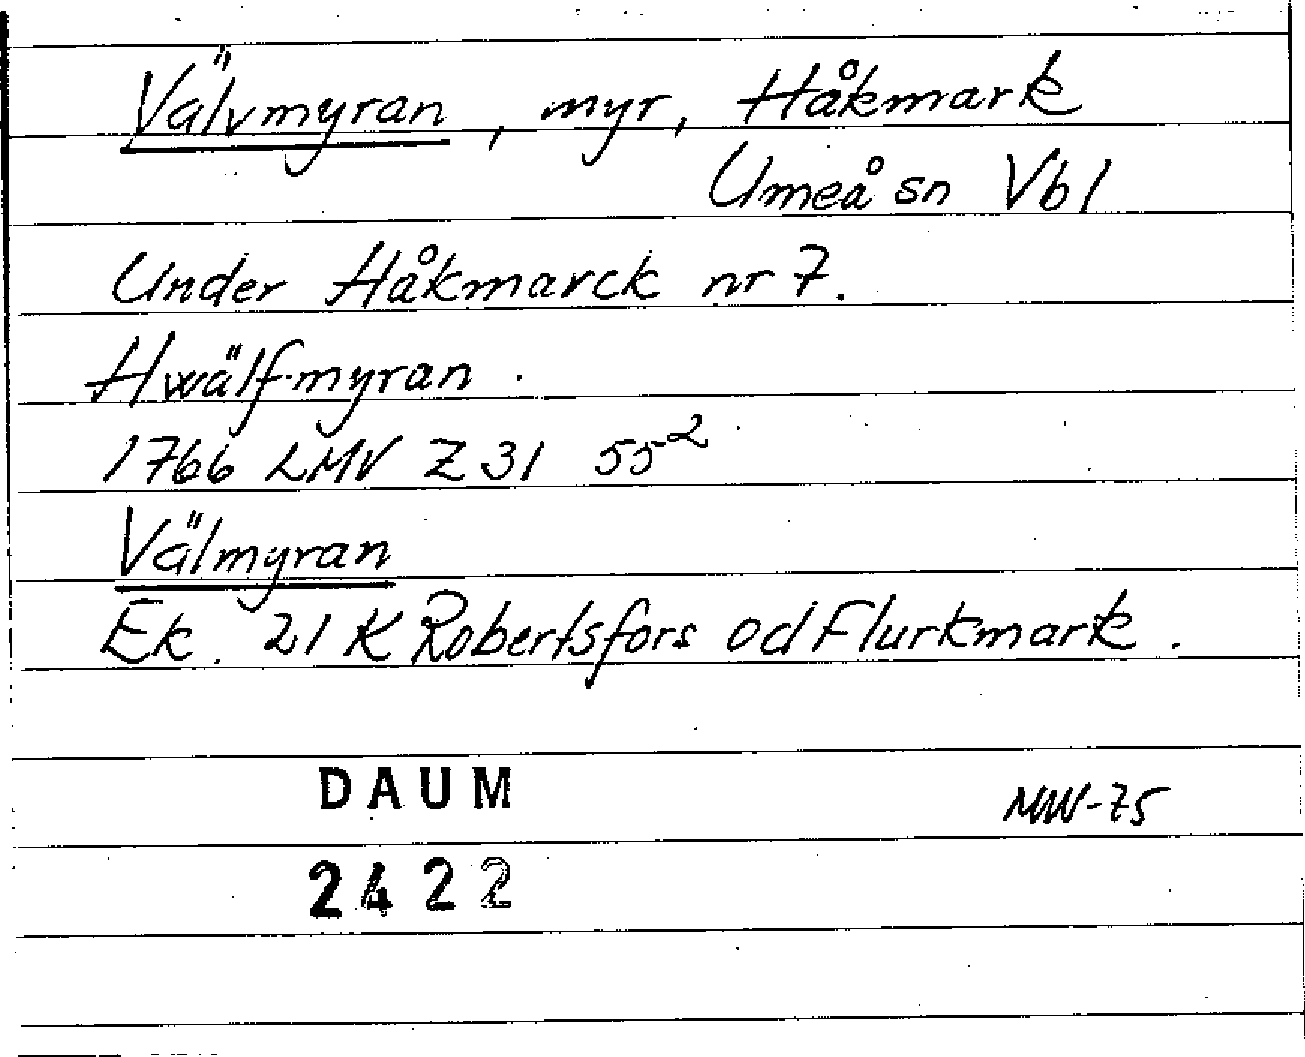 Välvmyran, myr, Håkmark
Umeå sn Vbl
Under Håkmarck nr 7.
Hwälfmyran.
1766 LMV Z 31 55²
Välmyran
Ek. 21 K Robertsfors od Flurkmark.
DAUM
MW-75
2422